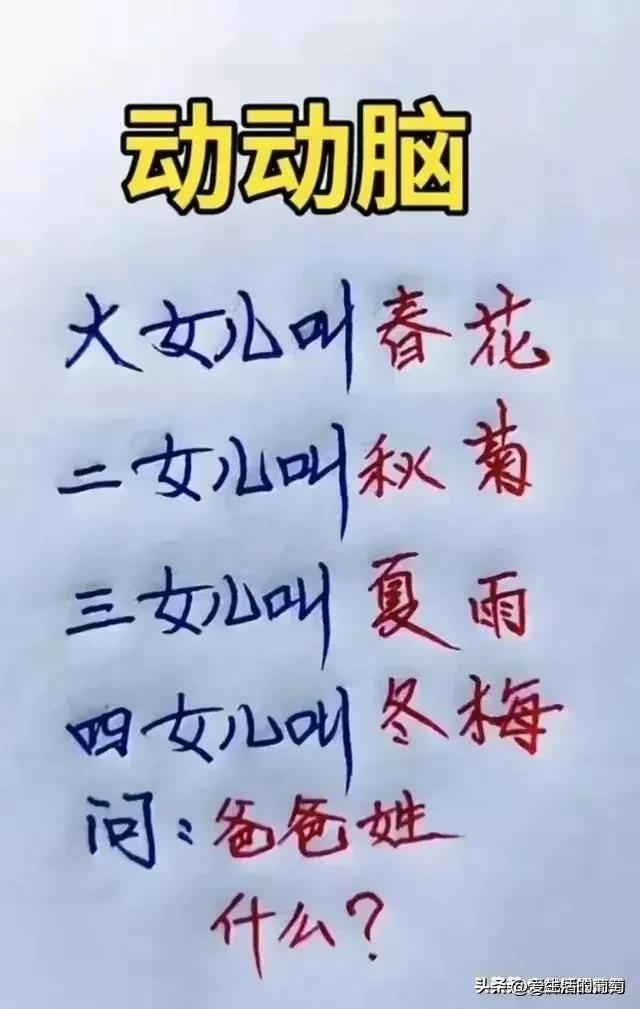 动动脑
大女儿叫春花
二女儿叫秋菊
三女儿叫夏雨
四女儿叫冬梅
问：爸爸姓
什么？
头条@爱生活的葡萄